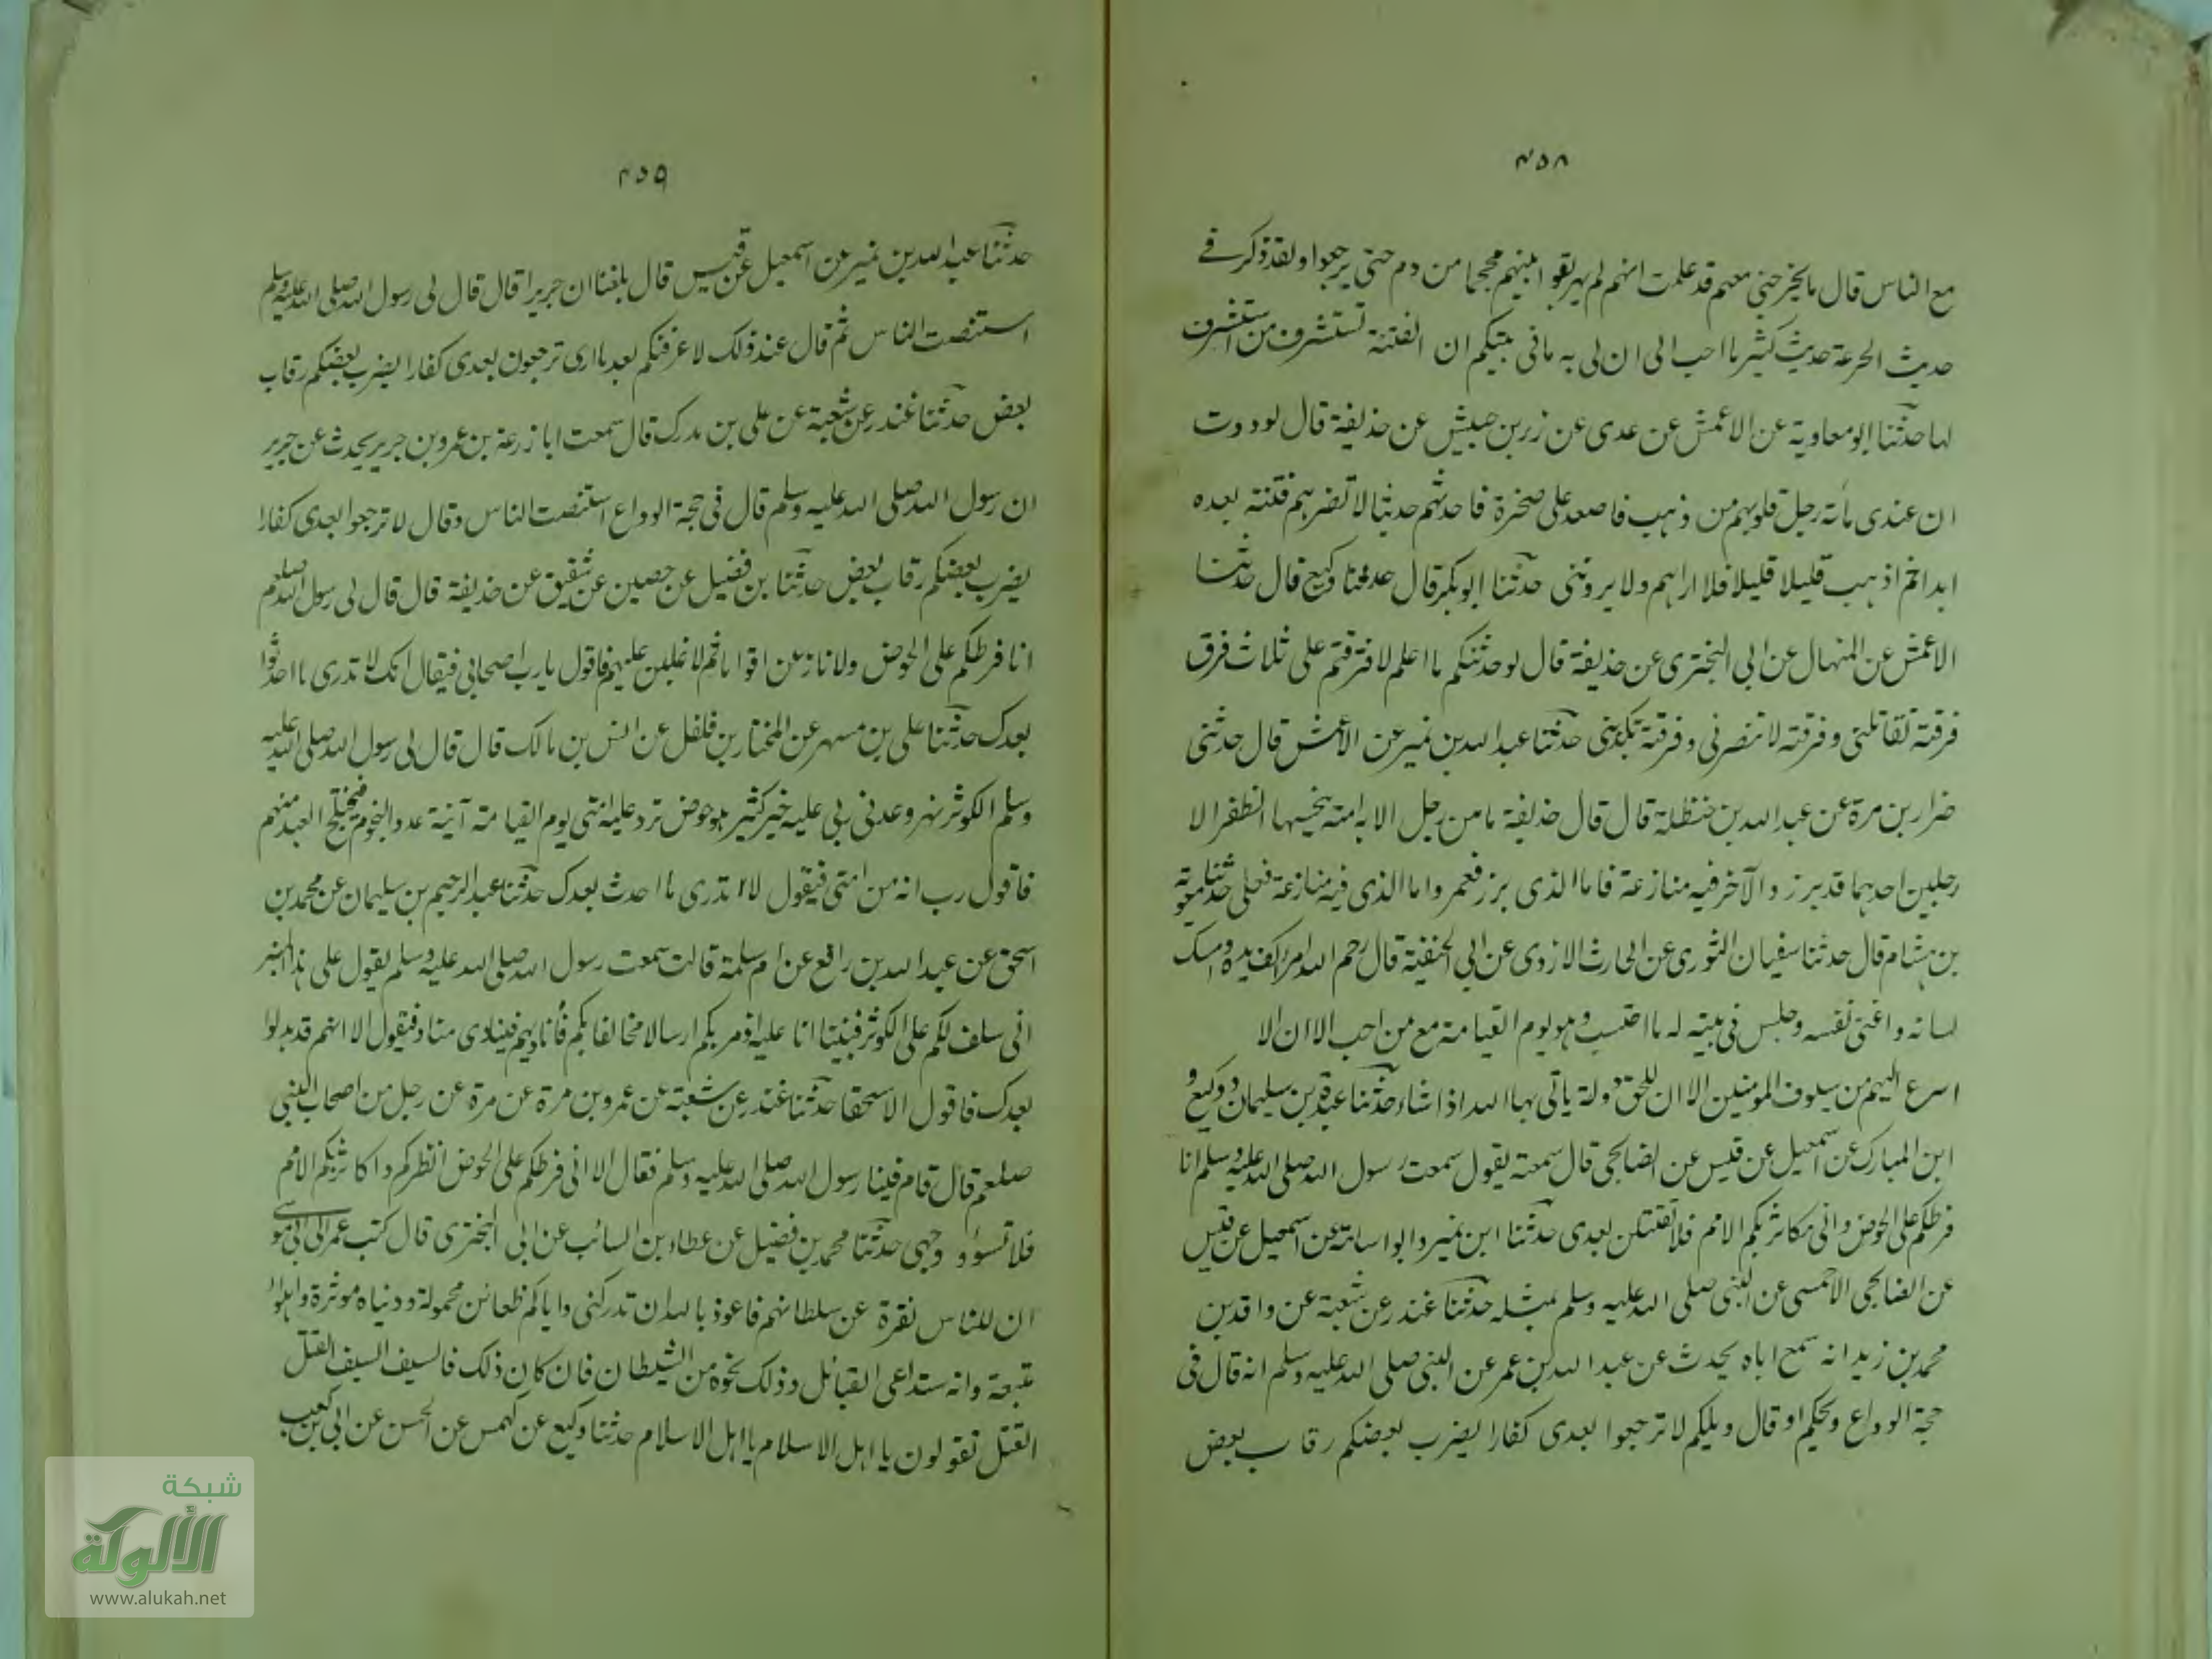 ٤٥٨
مع الناس قال ما يخرجني معهم قد علمت انهم لم يهريقوا بينهم محجما من دم حتى يرجعوا ولقد ذكر في
حديث الجرعة حديث كثير ما احب الى ان لى به ما في بيتكم ان الفتنة تستشرف من استشرف
لها حدثنا ابو معاوية عن الاعمش عن عدى عن زر بن حبيش عن حذيفة قال لو وددت
ان عندى مأته رجل قلوبهم من ذهب فاصعد على صخرة فاحدثهم حديثا لا تضرهم فتنة بعده
ابدا ثم اذهب قليلا قليلا فلا اراهم ولا يرونني حدثنا ابو بكر قال حدثنا وكيع قال حدثنا
الاعمش عن المنهال عن ابى البخترى عن حذيفة قال لو حدثتكم ما اعلم لافترقتم على ثلاث فرق
فرقة تقاتلنى وفرقة لا تنصرنى وفرقة تكذبنى حدثنا عبد الله بن نمير عن الاعمش قال حدثنى
ضرار بن مرة عن عبد الله بن حنظلة قال قال حذيفة ما من رجل الا به امته يجسها الظفر الا
رجلين احدهما قد برز والآخر فيه منازعة فاما الذى برز فعمر واما الذى فيه منازعة فعلى حدثنا معوية
بن هشام قال حدثنا سفيان الثورى عن الحارث الازدى عن ابى الحنفية قال رحم الله امرأ كف يده وامسك
لسانه واغنى نفسه وجلس فى بيته له ما احتسب وهو يوم القيامة مع من احب الا ان الا
اسرع اليهم من سيوف المومنين الا ان للحق دولة ياتى بها الله اذا شاء حدثنا عبدة بن سليمان و وكيع و
ابن المبارك عن اسمعيل عن قيس عن الصنابحى قال سمعته يقول سمعت رسول الله صلى الله عليه وسلم انا
فرطكم على الحوض وانى مكاثر بكم الامم فلا تقتتلن بعدى حدثنا ابن نمير وابو اسامة عن اسمعيل عن قيس
عن الصنابحى الاحمسى عن النبى صلى الله عليه وسلم بمثله حدثنا غندر عن شعبة عن واقد بن
محمد بن زيد انه سمع اباه يحدث عن عبد الله بن عمر عن النبى صلى الله عليه وسلم انه قال فى
حجة الوداع ويحكم او قال ويلكم لا ترجعوا بعدى كفارا يضرب بعضكم رقاب بعض
٤٥٩
حدثنا عبد الله بن نمير عن اسمعيل عن قيس قال بلغنا ان جريرا قال قال لى رسول الله صلى الله عليه وسلم
استنصت الناس ثم قال عند ذلك لا عرفنكم بعد ما ارى ترجعون بعدى كفارا يضرب بعضكم رقاب
بعض حدثنا غندر عن شعبة عن على بن مدرك قال سمعت ابا زرعة بن عمرو بن جرير يحدث عن جرير
ان رسول الله صلى الله عليه وسلم قال فى حجة الوداع استنصت الناس وقال لا ترجعوا بعدى كفارا
يضرب بعضكم رقاب بعض حدثنا بن فضيل عن حصين عن شقيق عن حذيفة قال قال لى رسول الله صلعم
انا فرطكم على الحوض ولانازعن اقواما ثم لاغلبن عليهم فاقول يارب اصحابى فيقال انك لا تدرى ما احدثوا
بعدك حدثنا على بن مسهر عن المختار بن فلفل عن انس بن مالك قال قال لى رسول الله صلى الله عليه
وسلم الكوثر نهر وعدنى ربى عليه خير كثير هو حوض ترد عليه امتى يوم القيامة آنية عدد النجوم فيختلج العبد منهم
فاقول رب انه من امتى فيقول لا تدرى ما احدث بعدك حدثنا عبد الرحيم بن سليمان عن محمد بن
اسحق عن عبد الله بن رافع عن ام سلمة قالت سمعت رسول الله صلى الله عليه وسلم يقول على هذا المنبر
انى سلف لكم على الكوثر فبينا انا عليه اذ مر بكم ارسالا مخالفا بكم فأناديهم فينادى مناد فيقول الا انهم قد بدلوا
بعدك فاقول الا سحقا حدثنا غندر عن شعبة عن عمرو بن مرة عن مرة عن رجل من اصحاب النبى
صلعم قال قام فينا رسول الله صلى الله عليه وسلم فقال الا انى فرطكم على الحوض انظركم واكاثر بكم الامم
فلا تسوؤوا وجهى حدثنا محمد بن فضيل عن عطاء بن السائب عن ابى البخترى قال كتب عمر الى ابى موسى
ان للناس نفرة عن سلطانهم فاعوذ بالله ان تدركنى واياكم ظعائن محمولة ودنياه موثرة واهواء
متبعة وانه ستداعى القبائل وذلك نخوة من الشيطان فان كان ذلك فالسيف السيف القتل
القتل تقولون يا اهل الاسلام يا اهل الاسلام حدثنا وكيع عن كهمس عن الحسن عن ابى بن كعب
شبكة
الألوكة
www.alukah.net